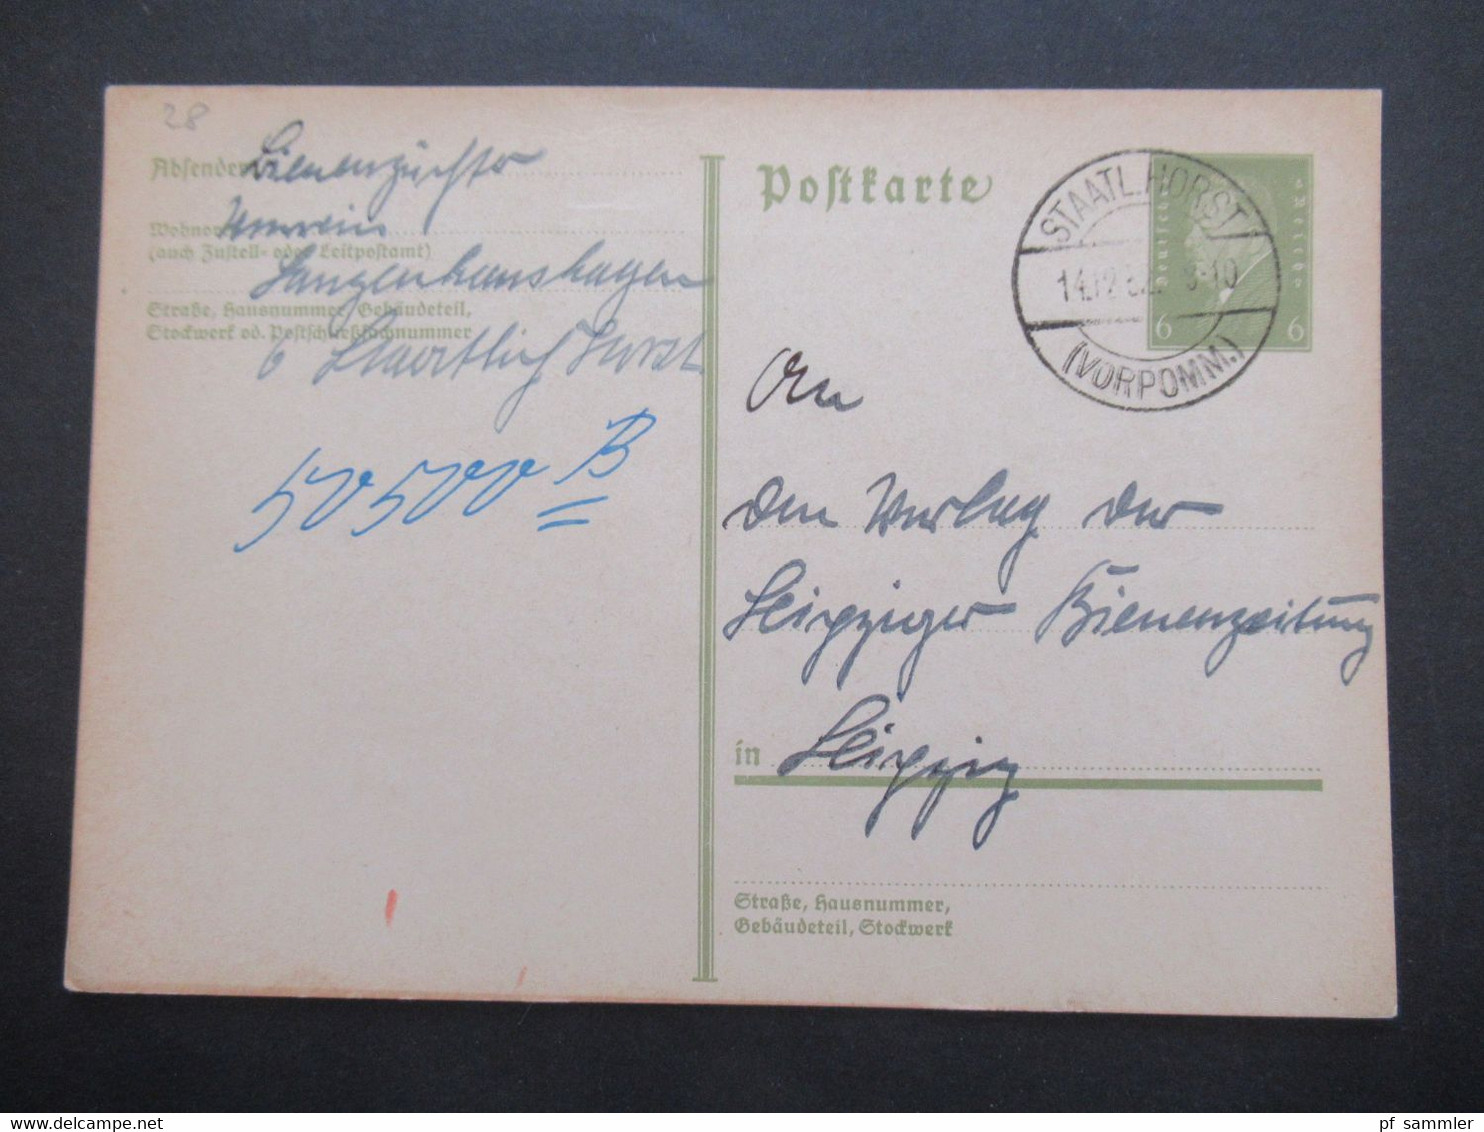 28
Absender: Bienenzüchter
Wohnort
Verein
(auch Zustell- oder Leitpostamt)
Langenhanshagen
Straße, Hausnummer, Gebäudeteil,
Stockwerk od. Postschließfachnummer
b Staatlich Horst
50500 B
Postkarte
Deutsches Reich
6 6
STAATL. HORST
14.12.32. 9-10
(VORPOMM.)
An
den Verlag der
Leipziger Bienenzeitung
in Leipzig
Straße, Hausnummer,
Gebäudeteil, Stockwerk
pf_sammler